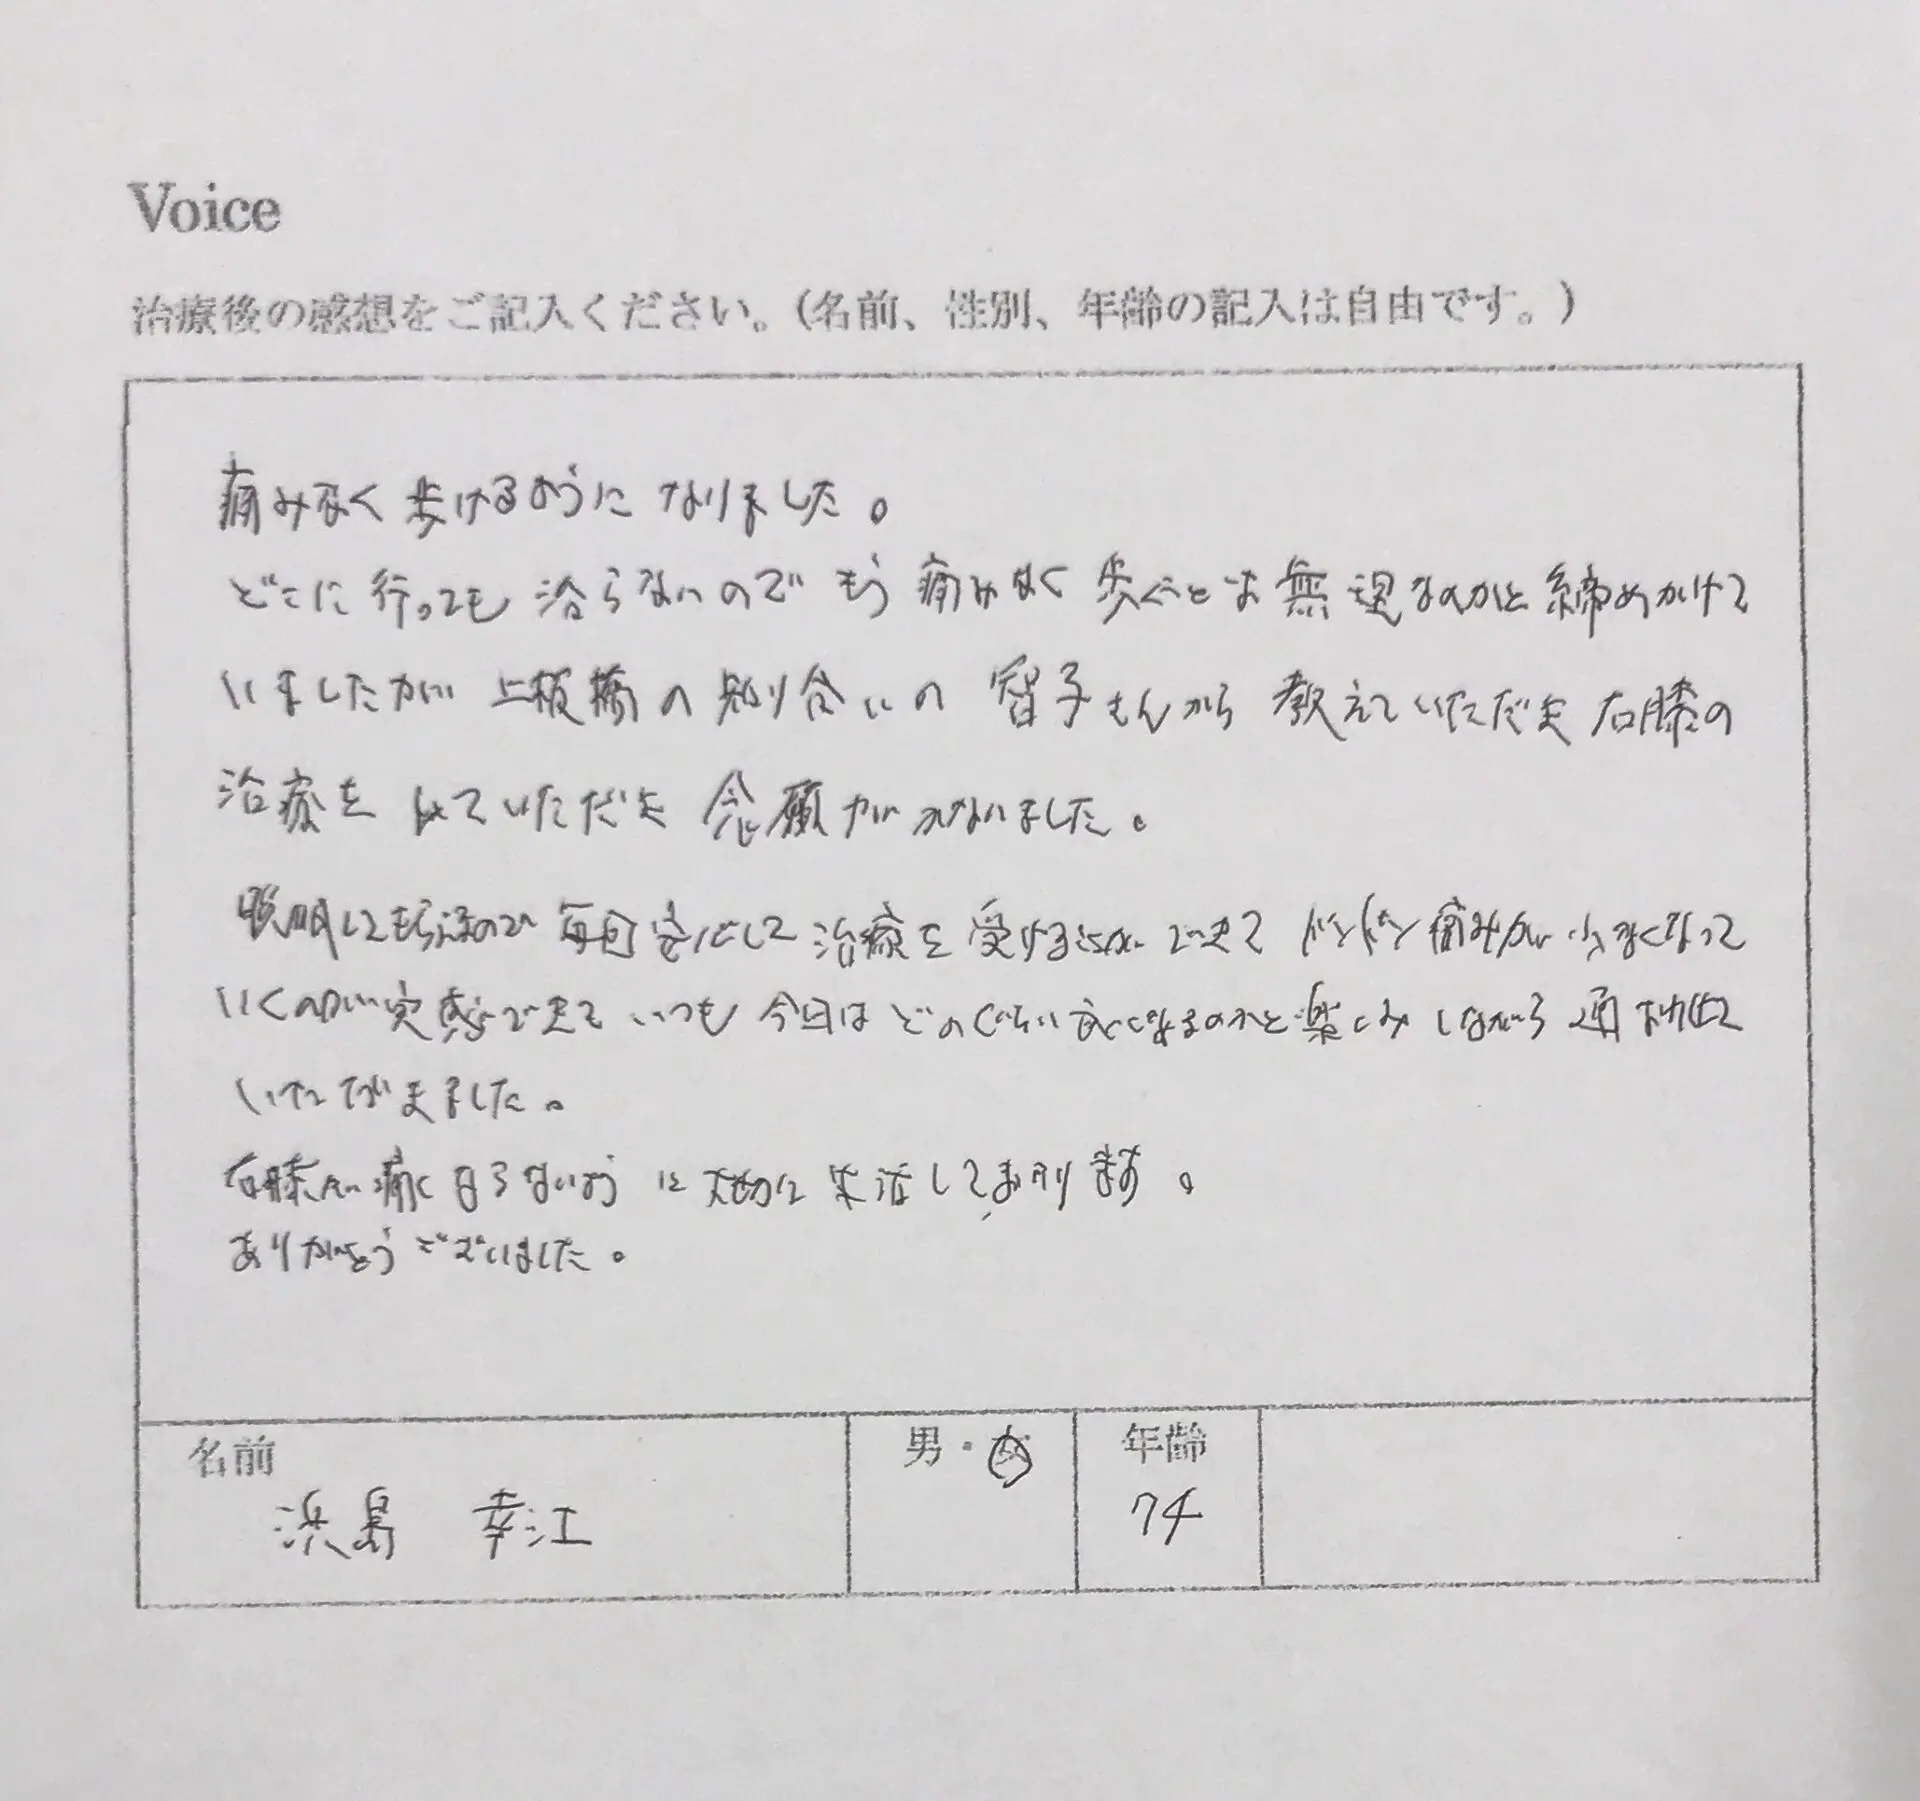 Voice
治療後の感想をご記入ください。(名前、性別、年齢の記入は自由です。)
痛みなく歩けるようになりました。
どこに行っても治らないのでもう痛みなく歩くことは無理なのかと締めかけて
いましたが上板橋の知り合いの智子さんから教えていただき右膝の
治療をしていただき念願がかないました。
説明してもらえるので毎回安心して治療を受けることができてドンドン痛みが少なくなって
いくのが実感できていつも今日はどのぐらい良くなるのかと楽しみしながら通わせて
いただきました。
右膝が痛くならないように大切に生活してまいります。
ありがとうございました。
名前
男・女
年齢
浜島 幸江
74